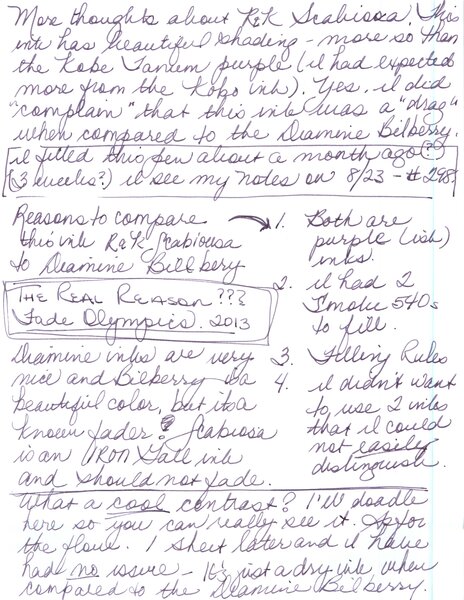 More thoughts about R&K Scabiosa. This
ink has beautiful shading - more so than
the Kobe Tanium purple (I had expected
more from the Kobo ink). Yes, I did
"complain" that this ink was a "drag"
when compared to the Diamine Bilberry.
I filled this pen about a month ago (?)
(3 weeks?) I see my notes on 8/23 - # 298.
Reasons to compare
this ink R&K Scabiosa
to Diamine Billbery
THE REAL REASON ???
Fade Olympics. 2013
Diamine inks are very
nice and Bilberry is a
beautiful color, but its a
known fader? Scabiosa
is an IRON Gall ink
and should not fade.
1. Both are
purple (ish)
inks.
2. I had 2
Smoke 540s
to fill.
3. Filling Rules
4. I didn't want
to use 2 inks
that I could
not easily
distinguish.
What a cool contrast? I'll doodle
here so you can really see it. As for
the flow. 1 sheet later and I have
had no issue - It's just a dry ink when
compared to the Diamine Bilberry.